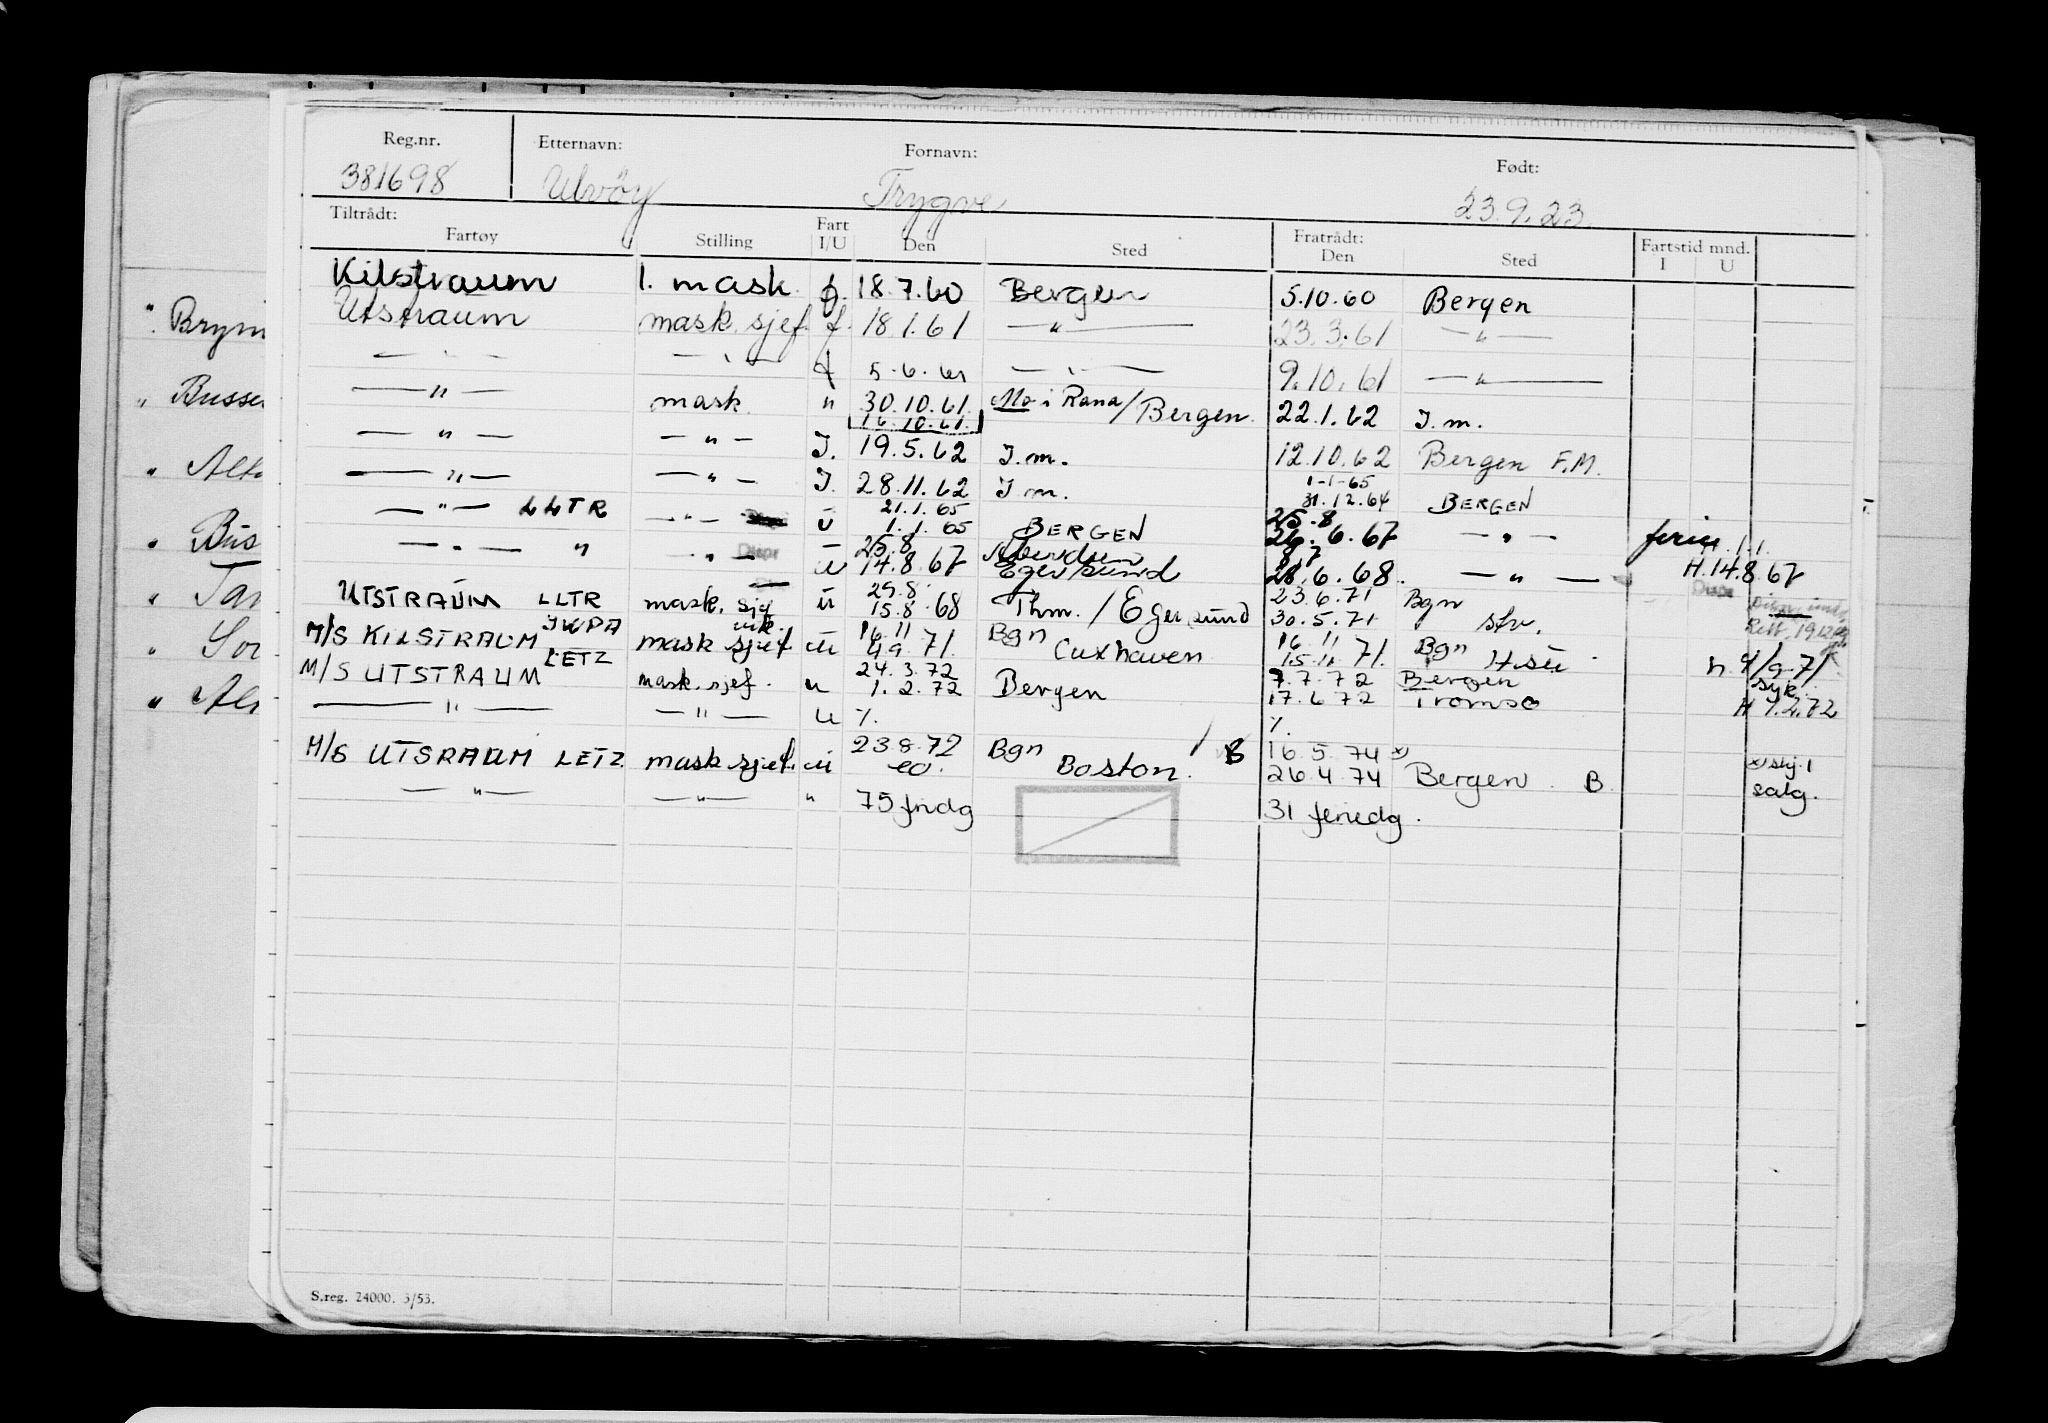 Reg.nr. Etternavn: Fornavn: Født:
381698 Ulvöy Trygve 23.9.23
Tiltrådt: Fratrådt: Fartstid mnd.
Fartøy Stilling Fart I/U Den Sted Den Sted I U
Kilstraum 1. mask f. 18.7.60 Bergen 5.10.60 Bergen
Utstraum mask.sjef. f. 18.1.61 —"— 23.3.61 —"—
—"— —"— f 5.6.61 —"— 9.10.61 —"—
—"— mask. " 30.10.61 Mo i Rana/Bergen. 22.1.62 I.m.
16.10.61
—"— —"— I. 19.5.62 I.m. 12.10.62 Bergen F.M.
—"— —"— I. 28.11.62 I.m. 1-1-65
31.12.64 BERGEN
21.1.65
—"— LLTR —"— U 1.1.65 BERGEN 25.8
26.6.67 —"— ferie H.1.1.
25.8 Aberdeen
—"— " —"— Disp U 14.8.67 Egersund 28.6.68. —"— H.14.8.67
29.8 23.6.71 Bgn Disp
UTSTRAUM LLTR mask. sjef U 15.8.68 Thm./Egersund 30.5.71 str.
JWPA vik 16.11 Bgn 16.11 Bgn
M/S KILSTRAUM mask sjef U 4.9.71. Cuxhaven 15.11.71. H.sü n. 4/9.71
LETZ 24.3.72 7.7.72 Bergen syk.
M/S UTSTRAUM mask.sjef. u 1.2.72 Bergen 17.6.72 Tromsø H 1.2.72
—"— —"— U %. %.
23.8.72 Bgn B 16.5.74 x)
M/S UTSRAUM LETZ mask sjef. U eo. Boston. 26.4.74 Bergen. B x) skj. 1
salg.
—"— —"— " 75 fridg 31 feriedg.
" Brym
" Busse
" Alta
" Bus
" Tan
" Sor
" Alt
S.reg. 24000. 3/53.